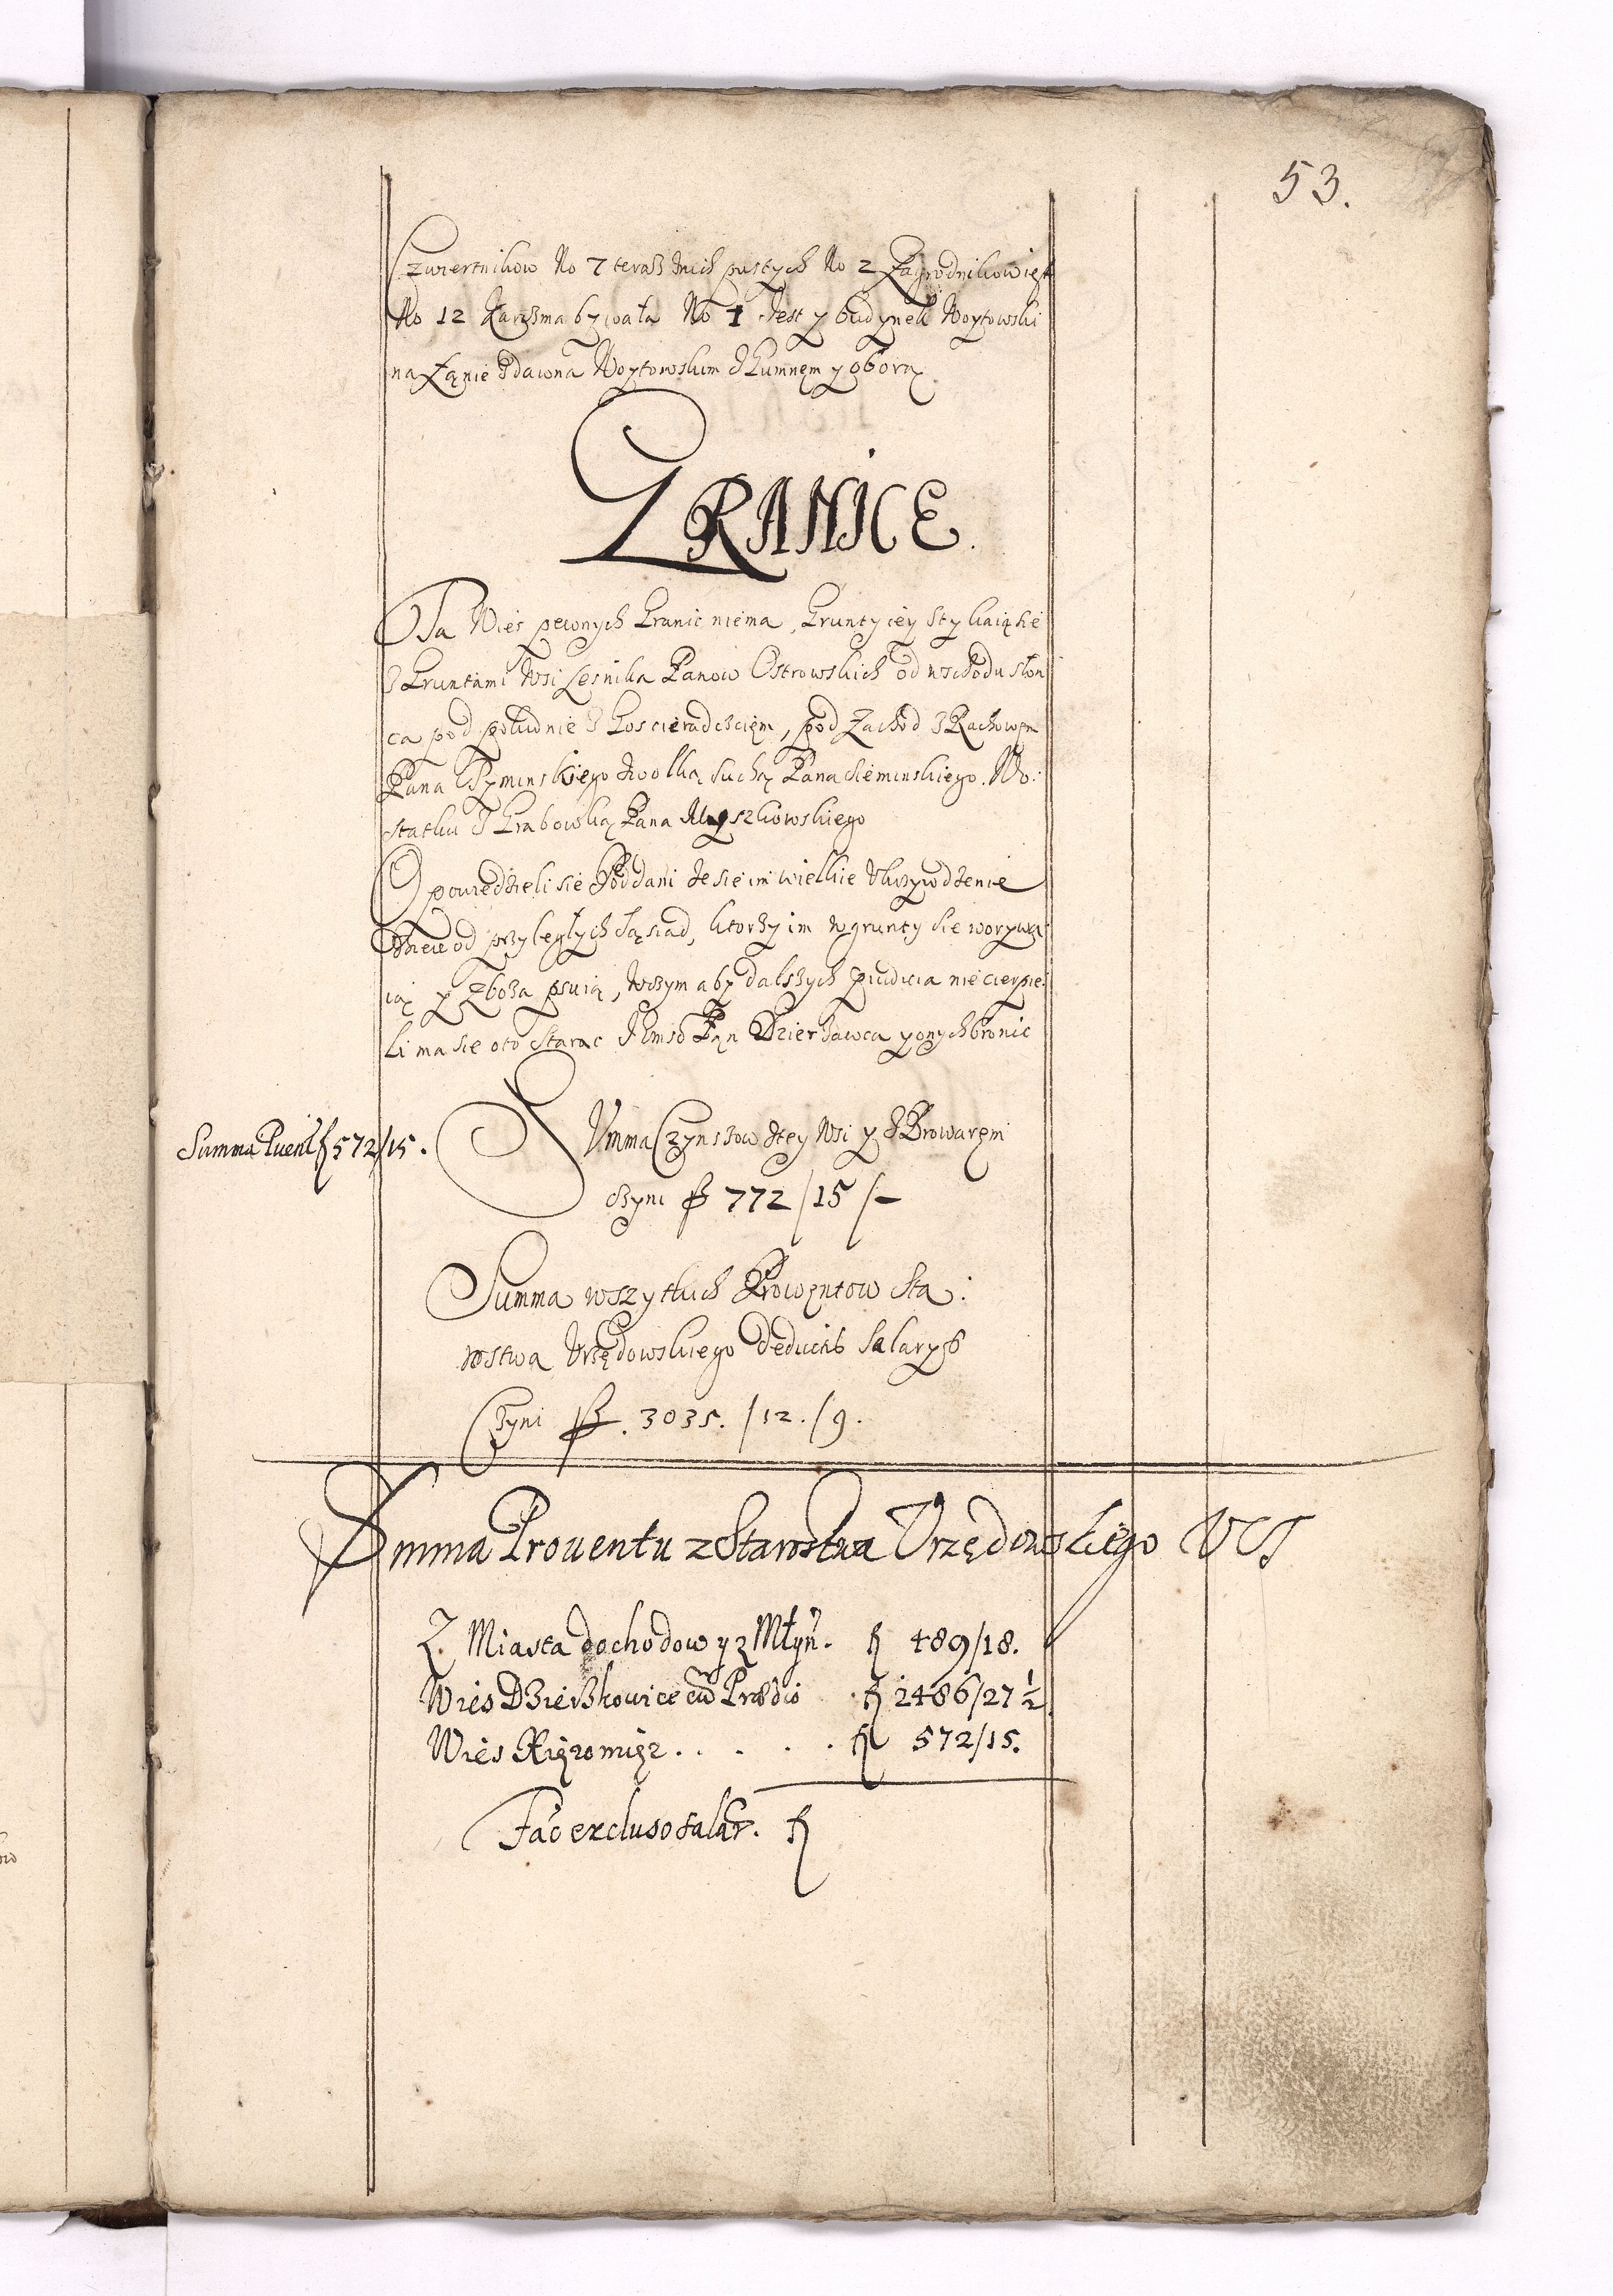 53.
Czwiertnikow No 7 teraz znich pustych No 2 Zagrodnikow iest
No 12 Karczma bywała No 1 Jest y budynek Woytowski
na Łąnie zdawna Woytowskim z Gumnęm y oborą
GRANICE.
Ta Wies pewnych Granic niema, Grunty iey stykaią sie
z Gruntami Wsi Lesnika Panow Ostrowskich od wschodu słon
ca pod południe z Gosciradczcięm, pod Zachod z Rachowęm
Pana Rzyminskiego zwolką suchą Pana Sieminskiego. No:
statku z Grabowką Pana Myszkowskiego
Opowiedzieli sie Poddani że sie im wielkie Ukrzywdzenie
dzieie od przyległych sąsiad, ktorzy im w grunty sie worywa:
ią y Zboża psuią, wczym aby dalszych piudicia nie cierpie:
li ma sie oto Starac Jmsc Pan Dzierżawca y onych bronic
Summa Puent f 572/15.
SUmma Czynszow ztey Wsi y z Browaręm
czyni fl 772/15/-
Summa wszytkich Prowęntow Sta:
rostwa Urzędowskiego deductis Salarys
Czyni fl. 3035./12./9.
Summa Prouentu z Starostwa Urzędowskiego UCS
Z Miasta dochodow y z Młyn. fl 489/18.
Wies Dzierzkouice cu Prædio fl 2486/27½
Wies Xięzomięz . . . . . fl 572/15.
Fac excluso salar. fl